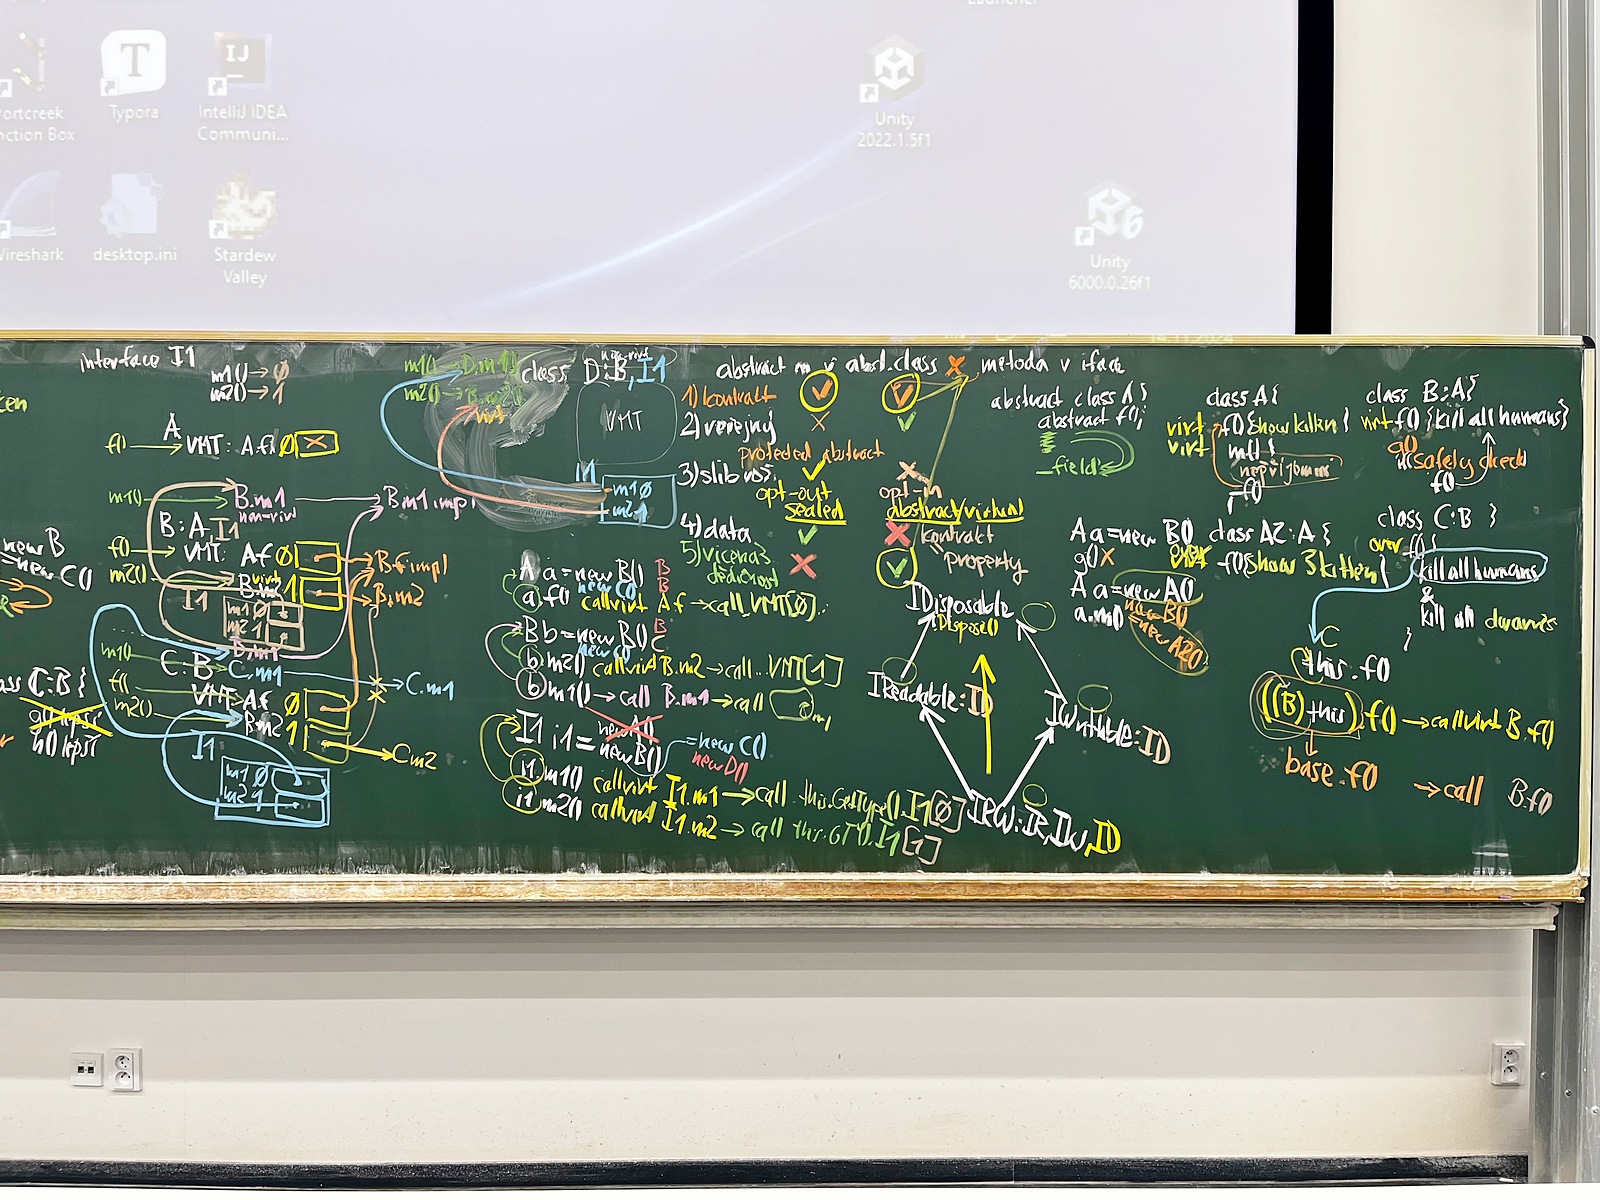 Launcher
Typora
IntelliJ IDEA
Communi...
Unity
2022.1.5f1
Wireshark
desktop.ini
Stardew
Valley
Unity
6000.0.26f1
interface I1
m1() → 0
m2() → 1
A
f() → VMT: A.f 0
m1()
B.m1
non-virt
B.m1 impl
B: A, I1
f()
VMT: A.f 0
B.f impl
m2()
virt
1
B.m2
I1
m1 0
m2 1
new B
= new C()
m1()
C:B
C.m1
C.m1
f()
VMT: A.f 0
m2()
B.m2 1
C.m2
I1
m1 0
m2 1
class C:B {
m1() → D.m1()
m2() → B.m2()
virt
class D:B, I1
non-virt
VMT
m1 0
m2 1
A a = new B() B
new C()
a.f() callvirt A.f → call VMT[0]
B b = new B() B
new C() C
b.m2() callvirt B.m2 → call..VMT[1]
b.m1() → call B.m1 → call
I1 i1 = new A()
new B()
= new C()
new D()
i1.m1() callvirt I1.m1 → call this.GetType().I1[0]
i1.m2() callvirt I1.m2 → call this.GT().I1[1]
abstract m v abst. class
metoda v iface
1) kontrakt
2) veřejný
protected abstract
3)
opt-out
sealed
opt-in
abstract/virtual
4) data
kontrakt
= property
5) vícenás
dědičnost
abstract class A {
abstract f();
_field
IDisposable
Dispose()
IReadable: ID
IWritable: ID
IRW: IR, IW, ID
class A {
virt f() {show kitten}
virt m() {
f()
class B:A {
virt f() {kill all humans}
g()
safety check
f()
A a = new B()
g()
class A2: A {
over f() {show 3 kitten}
A a = new A()
new B()
= new A2()
a.m()
class C:B }
over f() {
kill all humans
&
kill all dwarves
}
C
this.f()
((B) this).f() → callvirt B.f()
base.f() → call B.f()